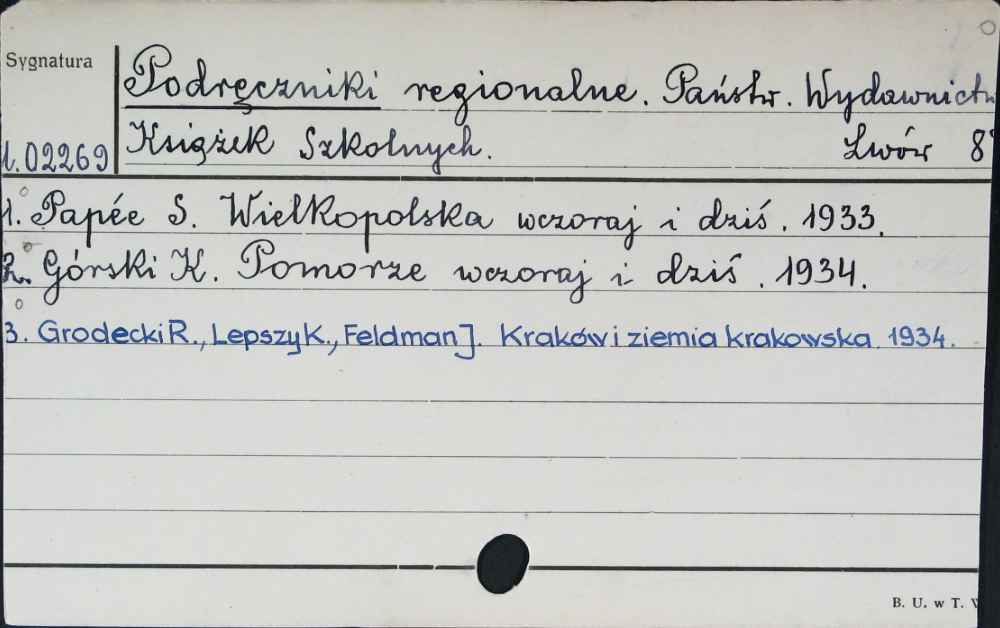 Sygnatura
Podręczniki regionalne. Państw. Wydawnictw
1.02269 Książek Szkolnych. Lwów 8°
1. Papée S. Wielkopolska wczoraj i dziś. 1933.
2. Górski K. Pomorze wczoraj i dziś. 1934.
3. Grodecki R., Lepszy K., Feldman J. Kraków i ziemia krakowska 1934.
B. U. w T.